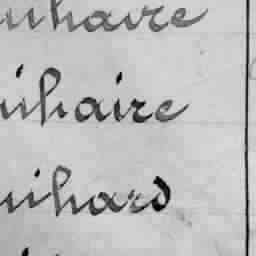 uhaire
uihaire
uihard